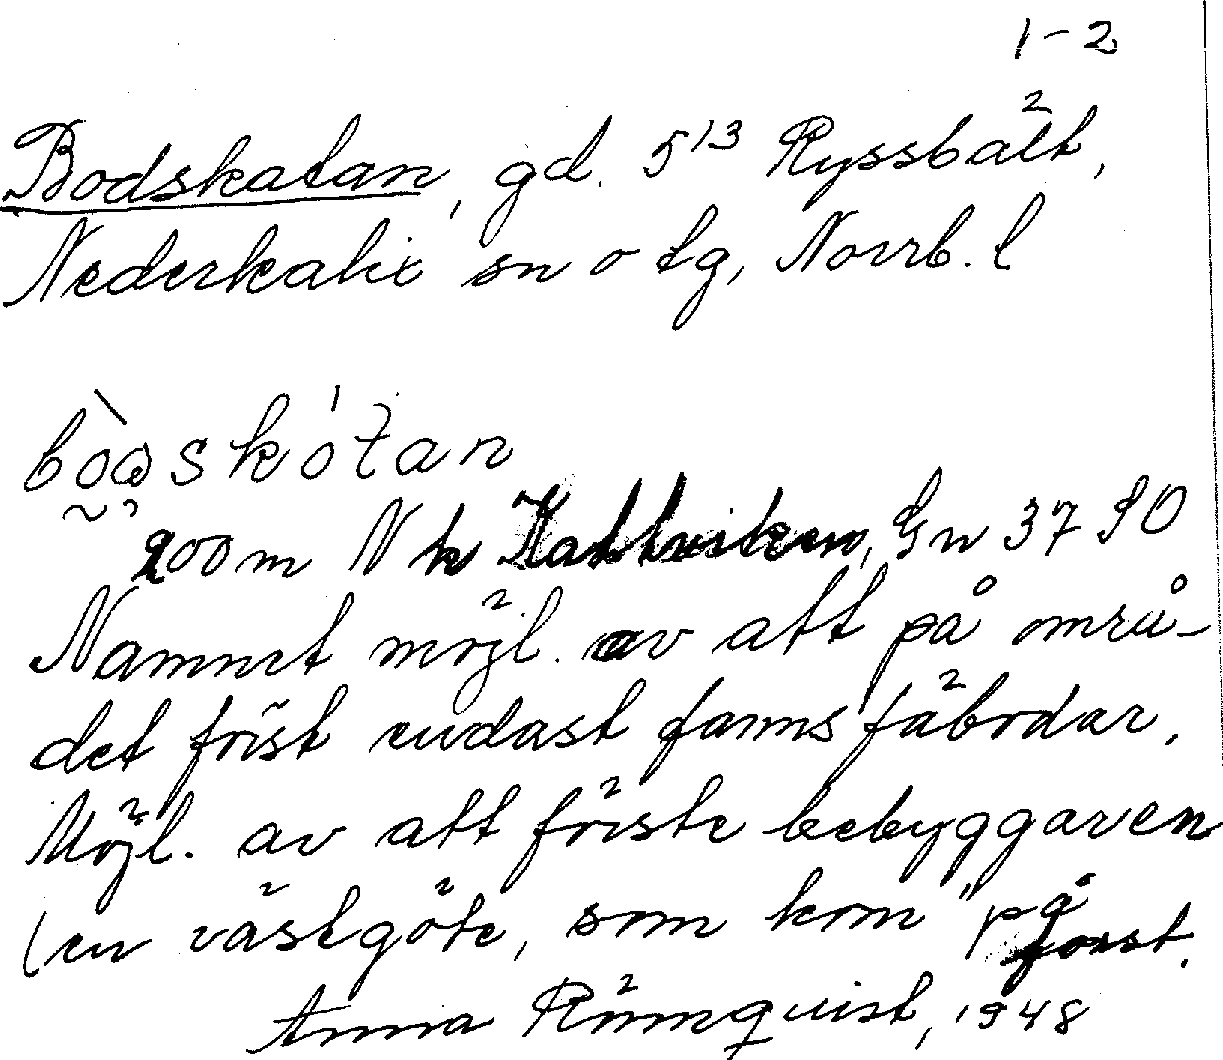 1-2
Bodskatan, gd. 5¹³ Ryssbält,
Nederkalix sn o tg, Norrb. l
bòdskótan
200 m N k Kattviken, Gn 3790
Namnet möjl. av att på områ-
det först endast fanns fäbodar.
Möjl. av att förste bebyggaren
(en västgöte, som kom "på
forst.
Anna Rönnquist, 1948